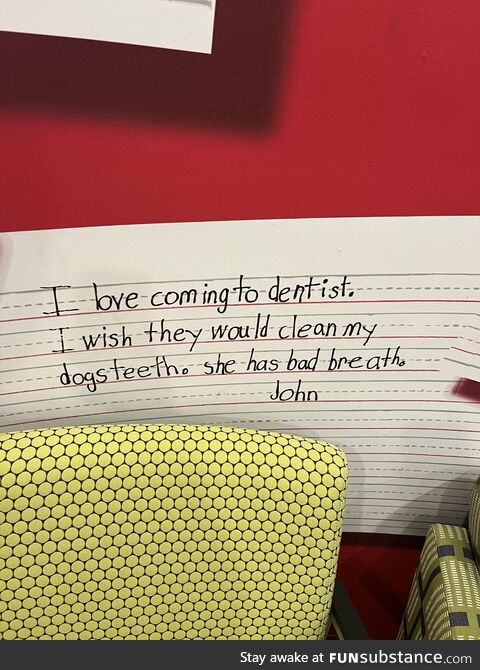 I love coming to dentist.
I wish they would clean my
dogs teeth. she has bad breath.
John
Stay awake at FUNsubstance.com